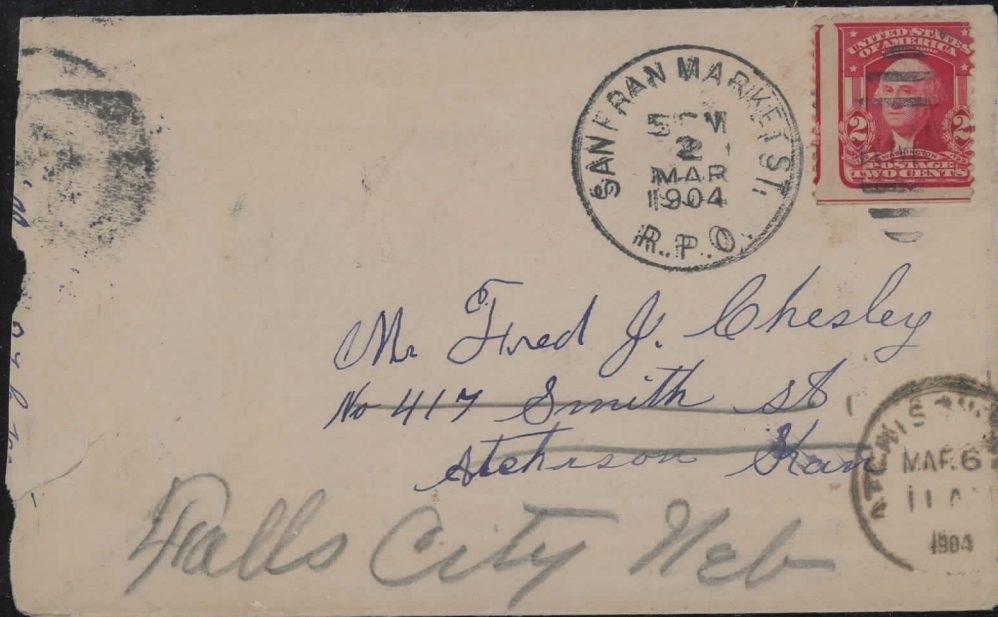 SAN FRAN MARKET ST.
2
MAR
1904
R.P.O.
UNITED STATES
OF AMERICA
2 2
POSTAGE
TWO CENTS
Mr Fred J. Chesley
No 417 Smith st
Atchison Kan
MAR 6
11 A
1904
Falls City Neb